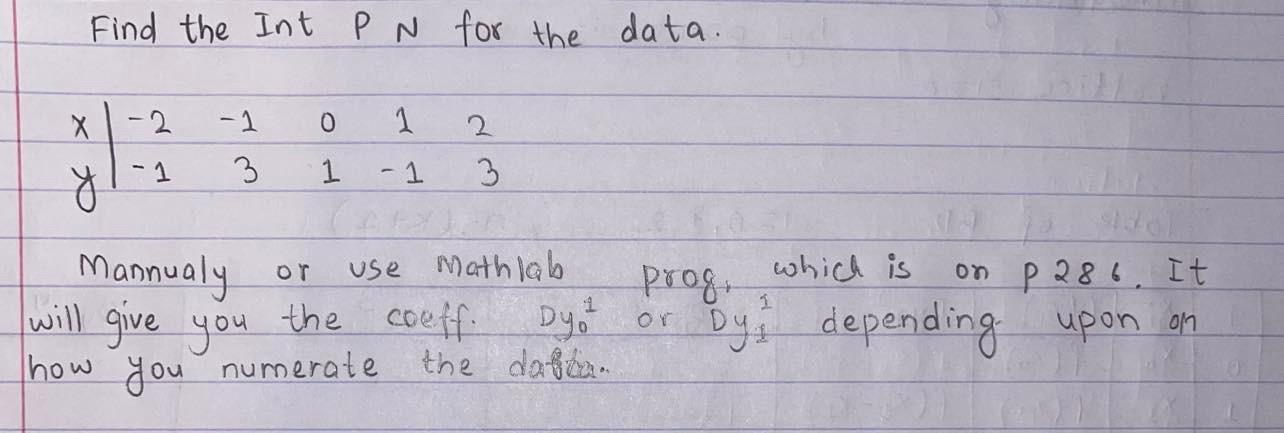 Find the Int P N for the data.
x | -2 -1 0 1 2
y | -1 3 1 -1 3
Mannualy or use Mathlab prog, which is on p 286. It
will give you the coeff. Dy₀¹ or Dy₁¹ depending upon on
how you numerate the data.